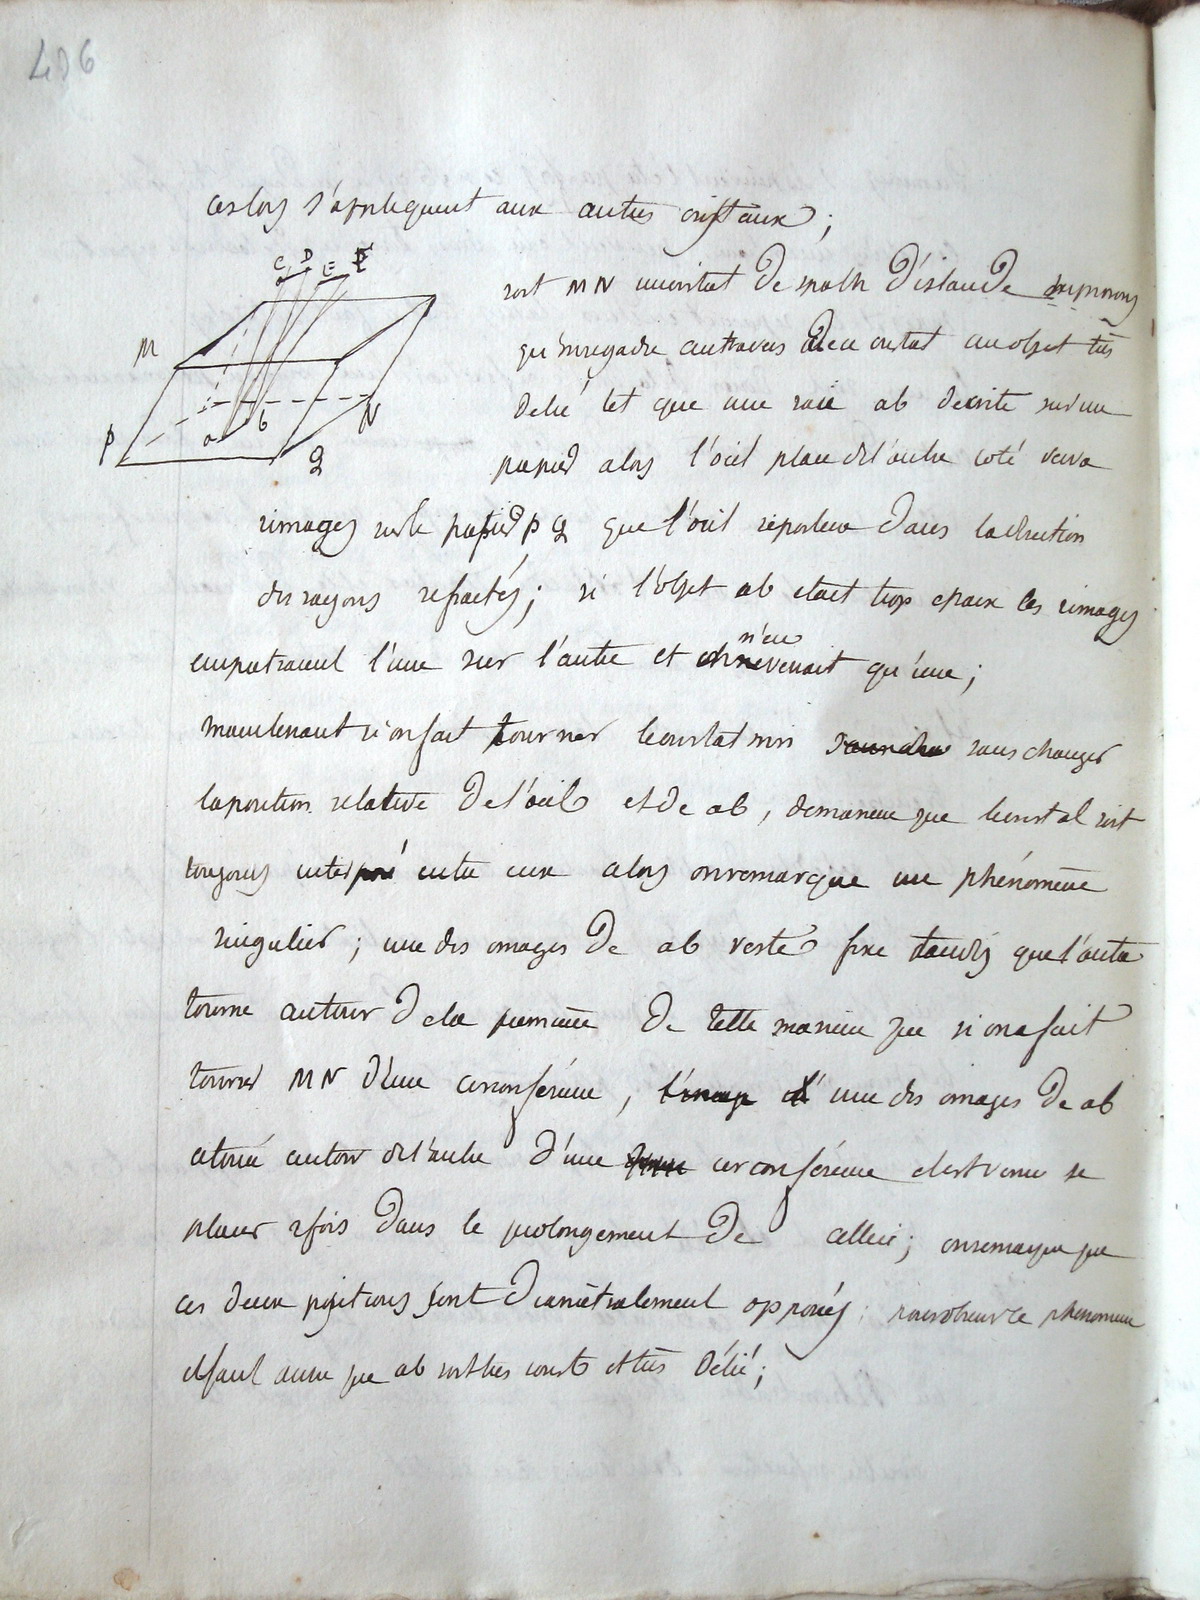 406
ces loix s'appliquent aux autres cristaux ;
C D E F
M
N
P
a b
Q
soit MN un cristal de spath d'islande supposons
qu'on regarde au travers de ce cristal un objet très
délié tel que une raie ab décrite sur un
papier alors l'œil placé de l'autre coté verra
2 images sur le papier PQ que l'œil reportera dans la direction
des rayons refractés ; si l'objet ab etait trop epaix les 2 images
empietraient l'une sur l'autre et n'en
venait qu'une ;
maintenant si on fait tourner le cristal MN sans changer
la position relative de l'œil et de ab , de maniere que le cristal soit
toujours interposé entre eux alors on remarque un phénomène
singulier ; une des images de ab reste fixe tandis que l'autre
tourne autour de la premiere de telle maniere que si on a fait
tourner MN d'une circonférence , l'image une des images de ab
a tourné autour de l'autre d'une circonférence et est venue se
placer 2 fois dans le prolongement de celle ci ; on remarque que
ces deux positions sont diamètralement opposées ; ce phénomène
il faut aussi que ab soit très court et très délié ;